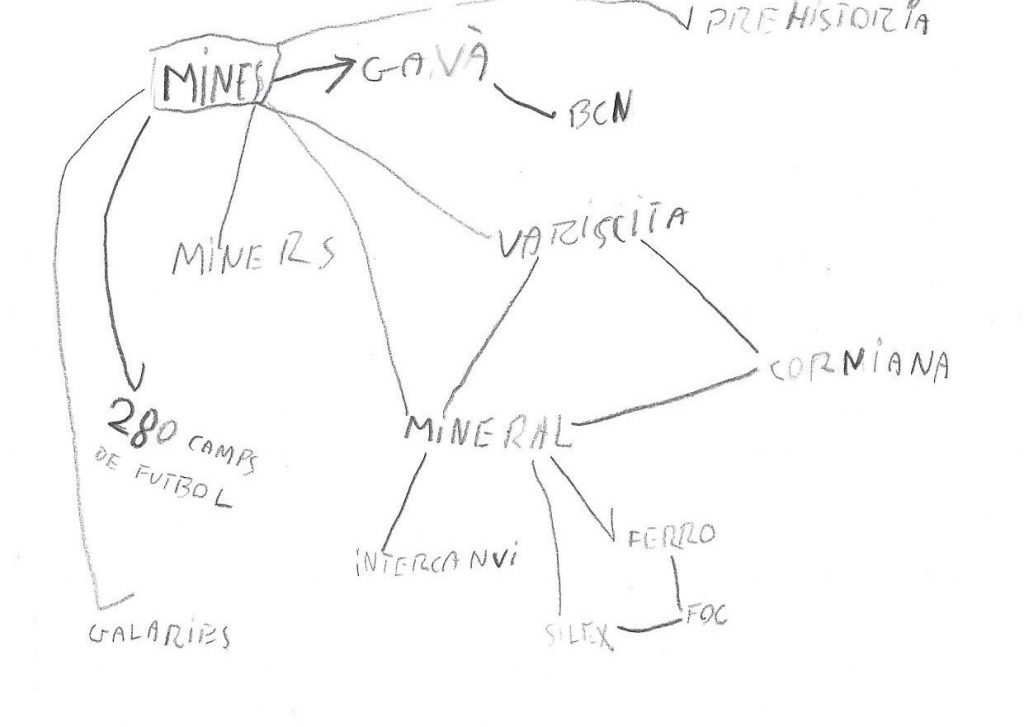 PREHISTORIA
MINES
GAVÀ
BCN
MINERS
VARISCITA
CORNIANA
MINERAL
280 CAMPS
DE FUTBOL
INTERCANVI
FERRO
GALARIES
SILEX
FOC